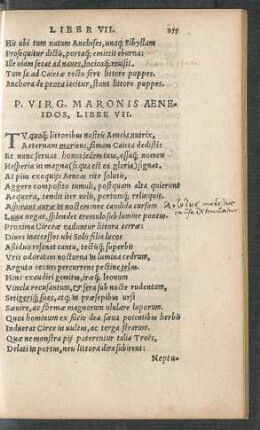 LIBER VII. 255
Hic ubi tum natum Anchises, unaq; Sibyllam
Prosequitur dictis, portaq; emittit eburna:
Ille uiam secat ad naues, sociosq; reuisit.
Tum se ad Caietæ recto fert littore puppes.
Anchora de prora iacitur, stant littore puppes.
P. VIRG. MARONIS AENE-
IDOS, LIBER VII.
TV quoq; littoribus nostris Aeneia nutrix,
Aeternam moriens, famam Caieta dedisti:
Et nunc seruat honos sedem tuus, ossaq; nomen
Hesperia in magna (si qua est ea gloria) signat.
At pius exequijs Aeneas rite solutis,
Aggere composito tumuli, postquam alta quierunt
Aequora, tendit iter uelis, portumq; relinquit.
Aspirant auræ in noctem: nec candida cursum
Luna negat, splendet tremulo sub lumine pontus.
Proxima Circeæ raduntur littora terræ:
Diues inaccessos ubi Solis filia lucos
Assiduo resonat cantu, tectisq; superbis
Vrit odoratam nocturna in lumina cedrum,
Arguto tenues percurrens pectine telas.
Hinc exaudiri gemitus, iræq; leonum
Vincla recusantum, & sera sub nocte rudentum,
Setigeriq; sues, atq; in præsepibus ursi
Sæuire, ac formæ magnorum ululare luporum.
Quos hominum ex facie dea sæua potentibus herbis
Induerat Circe in uultus, ac terga ferarum.
Quæ ne monstra pij paterentur talia Troës,
Delati in portus, neu littora dira subirent:
Neptu-